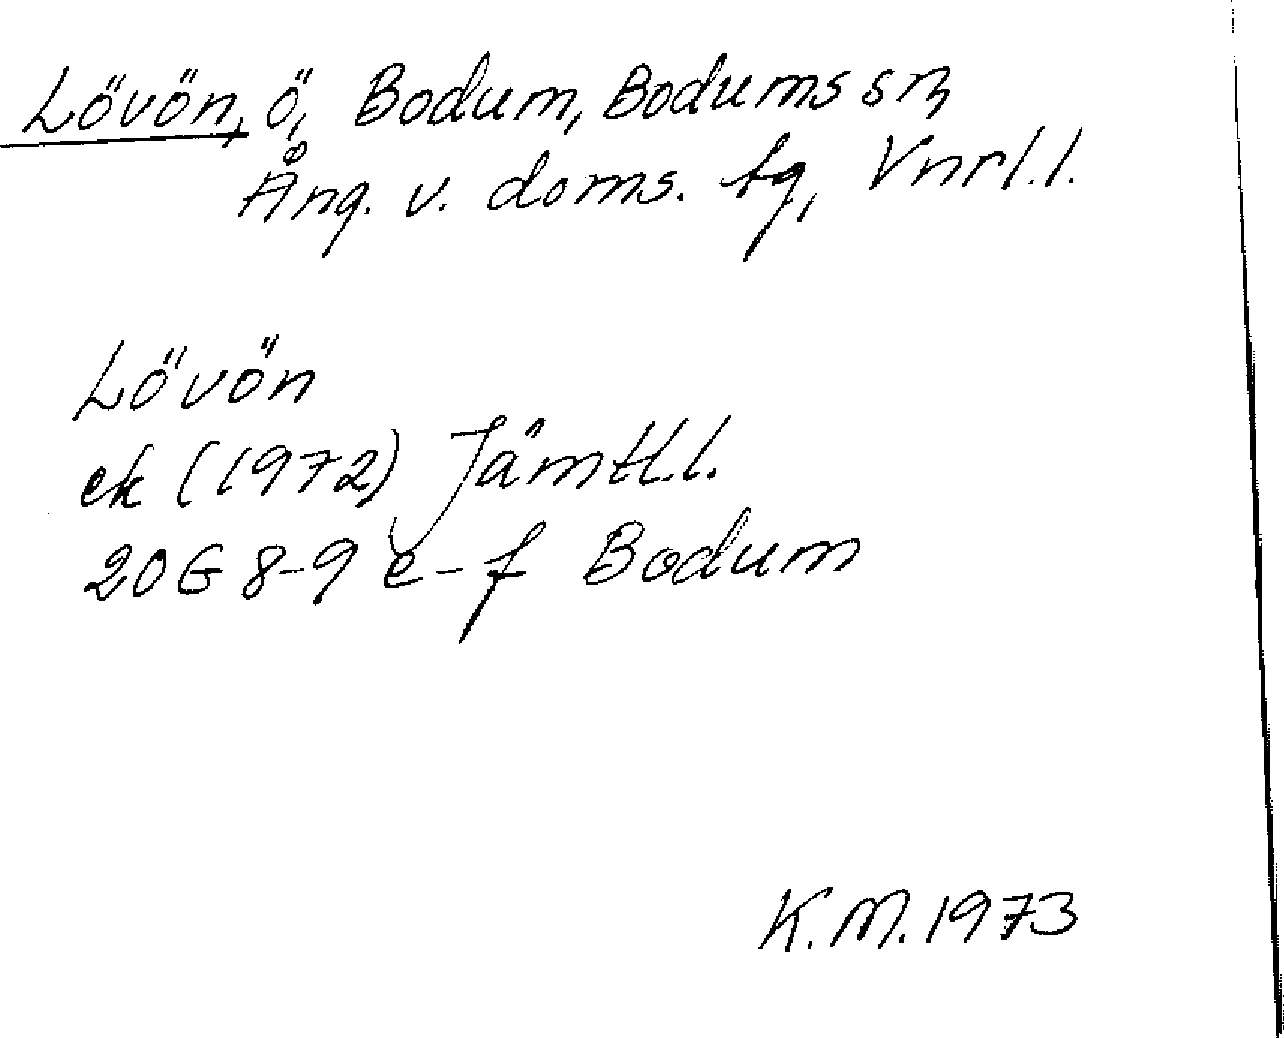 Lövön, ö, Bodum, Bodums sn,
Ång. v. doms. tg, Vnrl.l.
Lövön
ek (1972) Jämtl.l.
20G 8-9 e-f Bodum
K.M. 1973